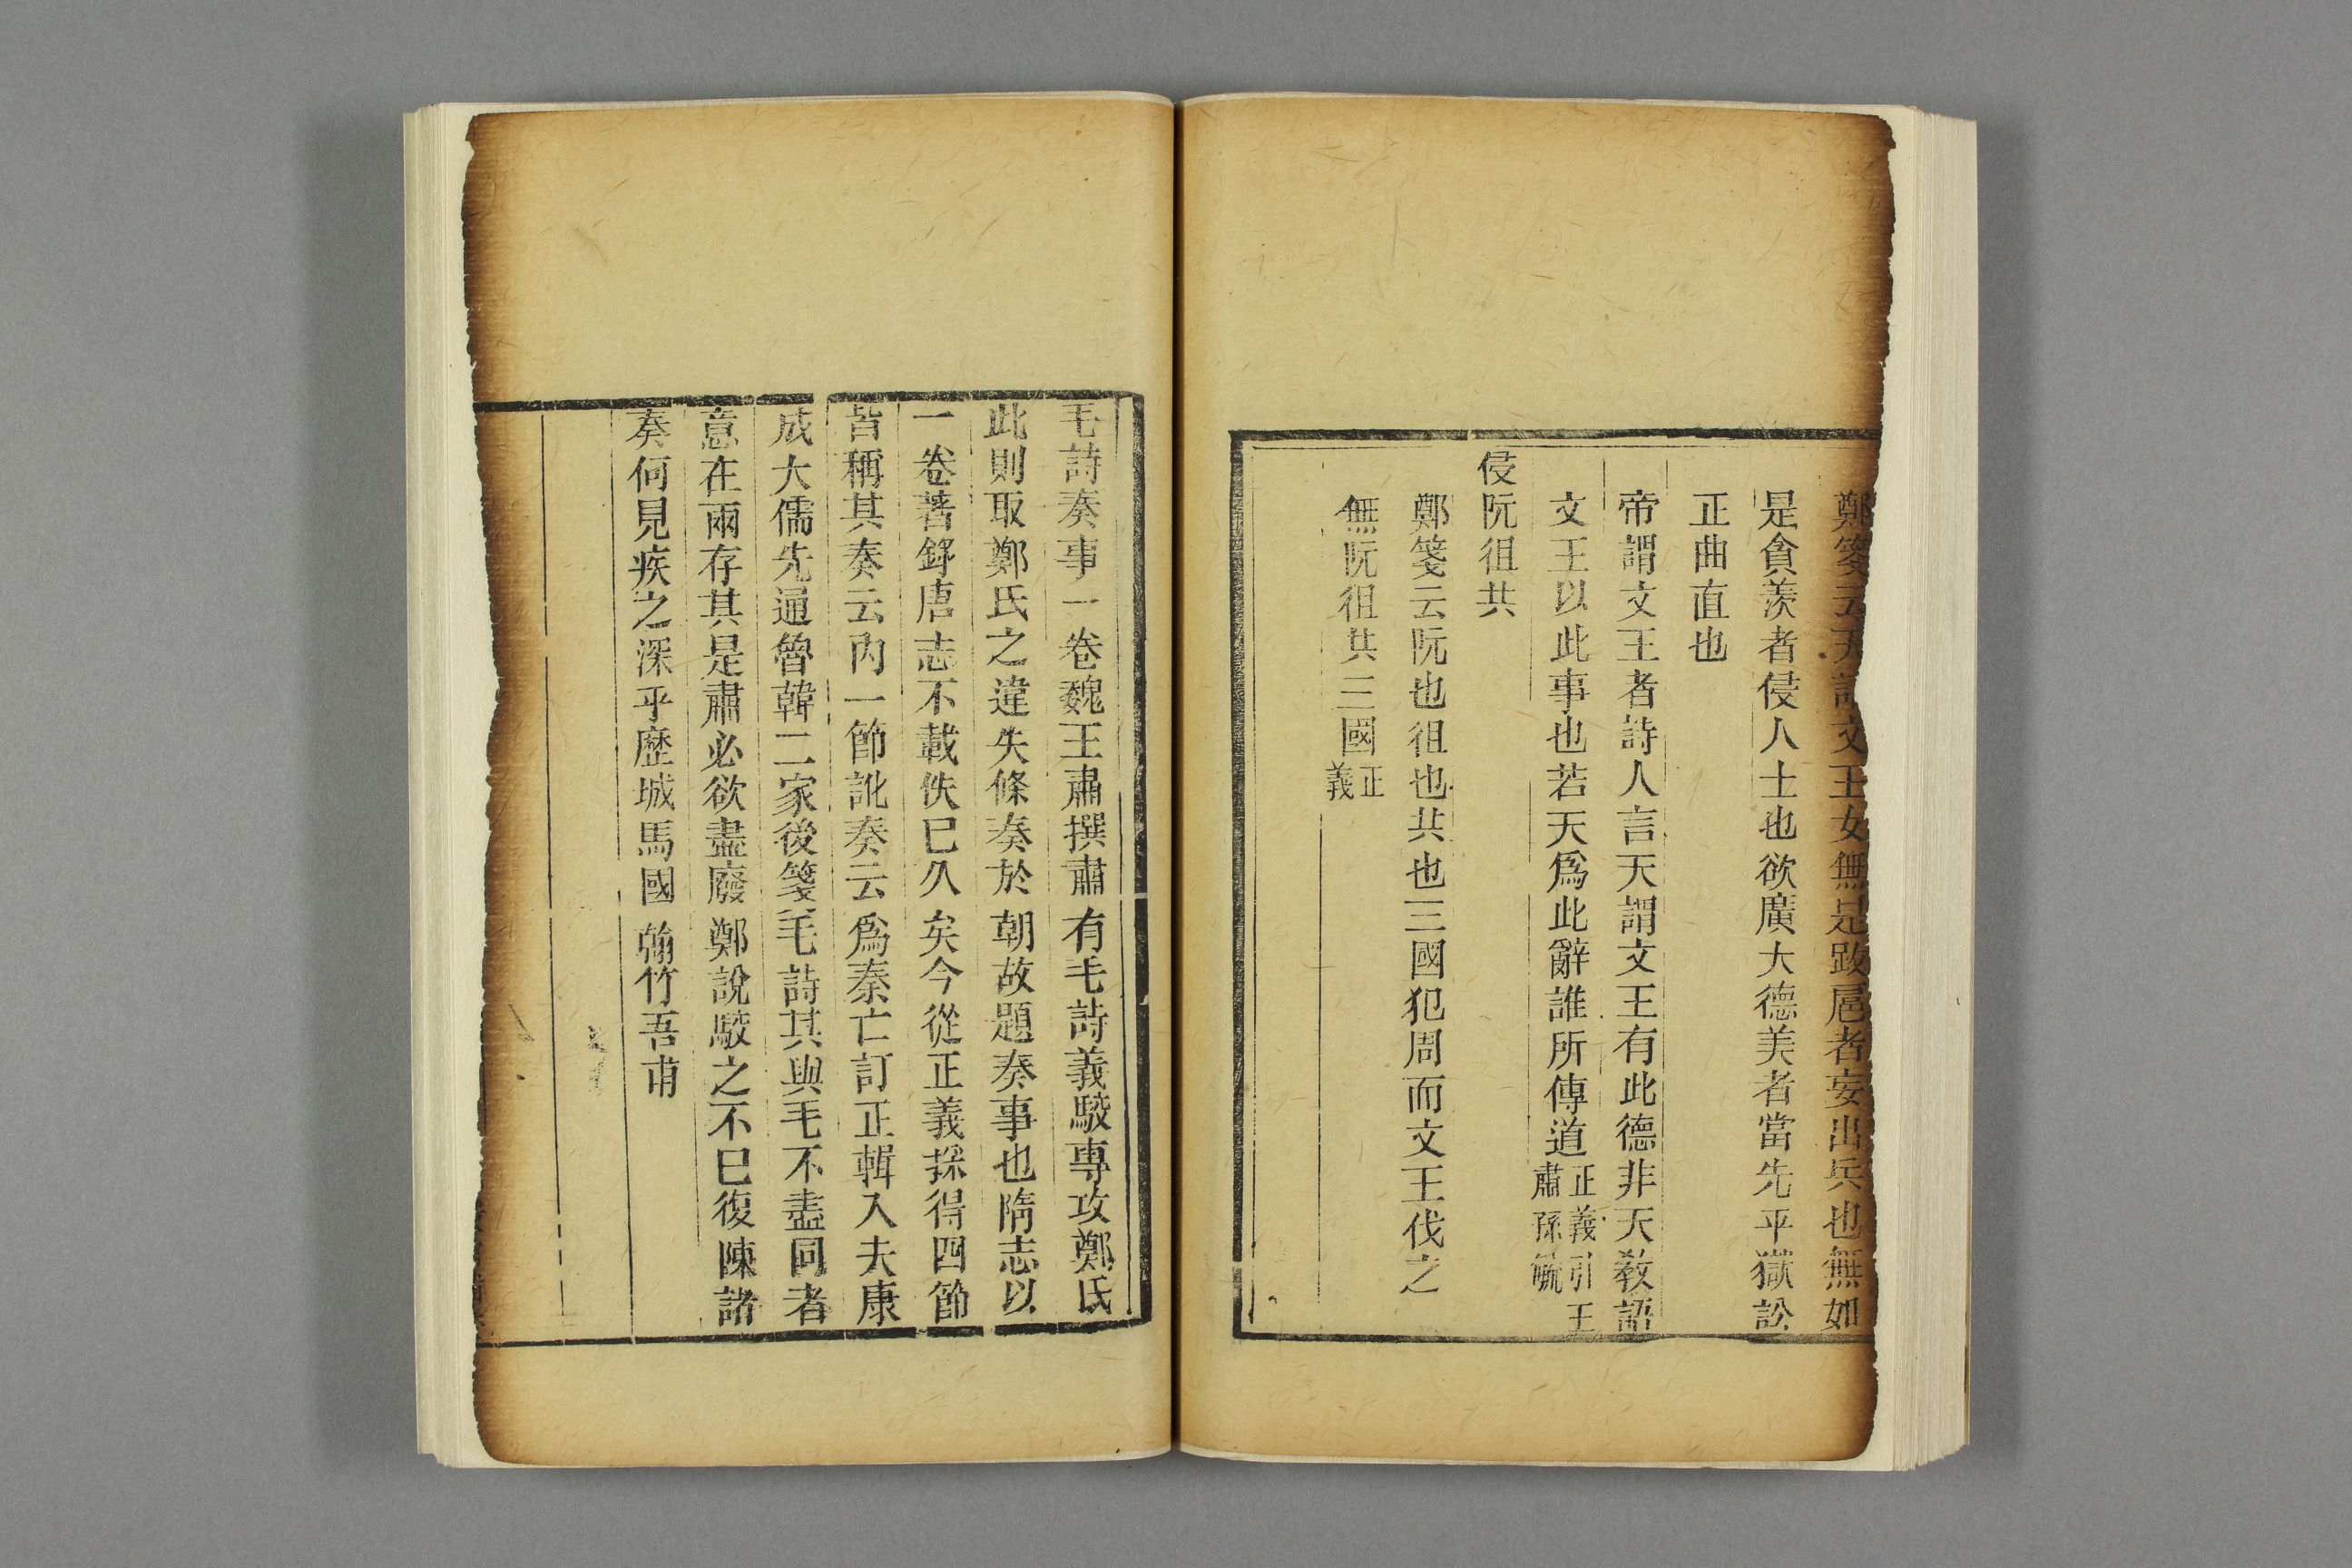 鄭箋云天語文王女無是跋扈者妄出兵也無如
是貪羨者侵人土也欲廣大德美者當先平獄訟
正曲直也
帝謂文王者詩人言天謂文王有此德非天教語
文王以此事也若天爲此辭誰所傳道正義引王肅孫毓
侵阮徂共
鄭箋云阮也徂也共也三國犯周而文王伐之
無阮徂共三國正義
毛詩奏事一卷魏王肅撰肅有毛詩義駮專攻鄭氏
此則取鄭氏之違失條奏於朝故題奏事也隋志以
一卷著錄唐志不載佚已久矣今從正義採得四節
皆稱其奏云內一節訛奏云爲秦亡訂正輯入夫康
成大儒先通魯韓二家後箋毛詩其與毛不盡同者
意在兩存其是肅必欲盡廢鄭說駮之不已復陳諸
奏何見疾之深乎歷城馬國翰竹吾甫